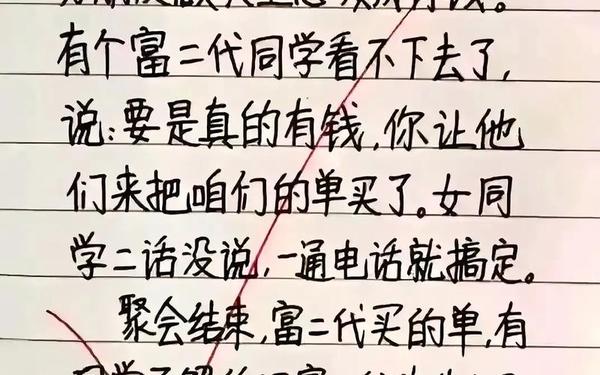 有个富二代同学看不下去了,
说:要是真的有钱,你让他
们来把咱们的单买了。女同
学二话没说,一通电话就搞定。
聚会结束,富二代买的单,有